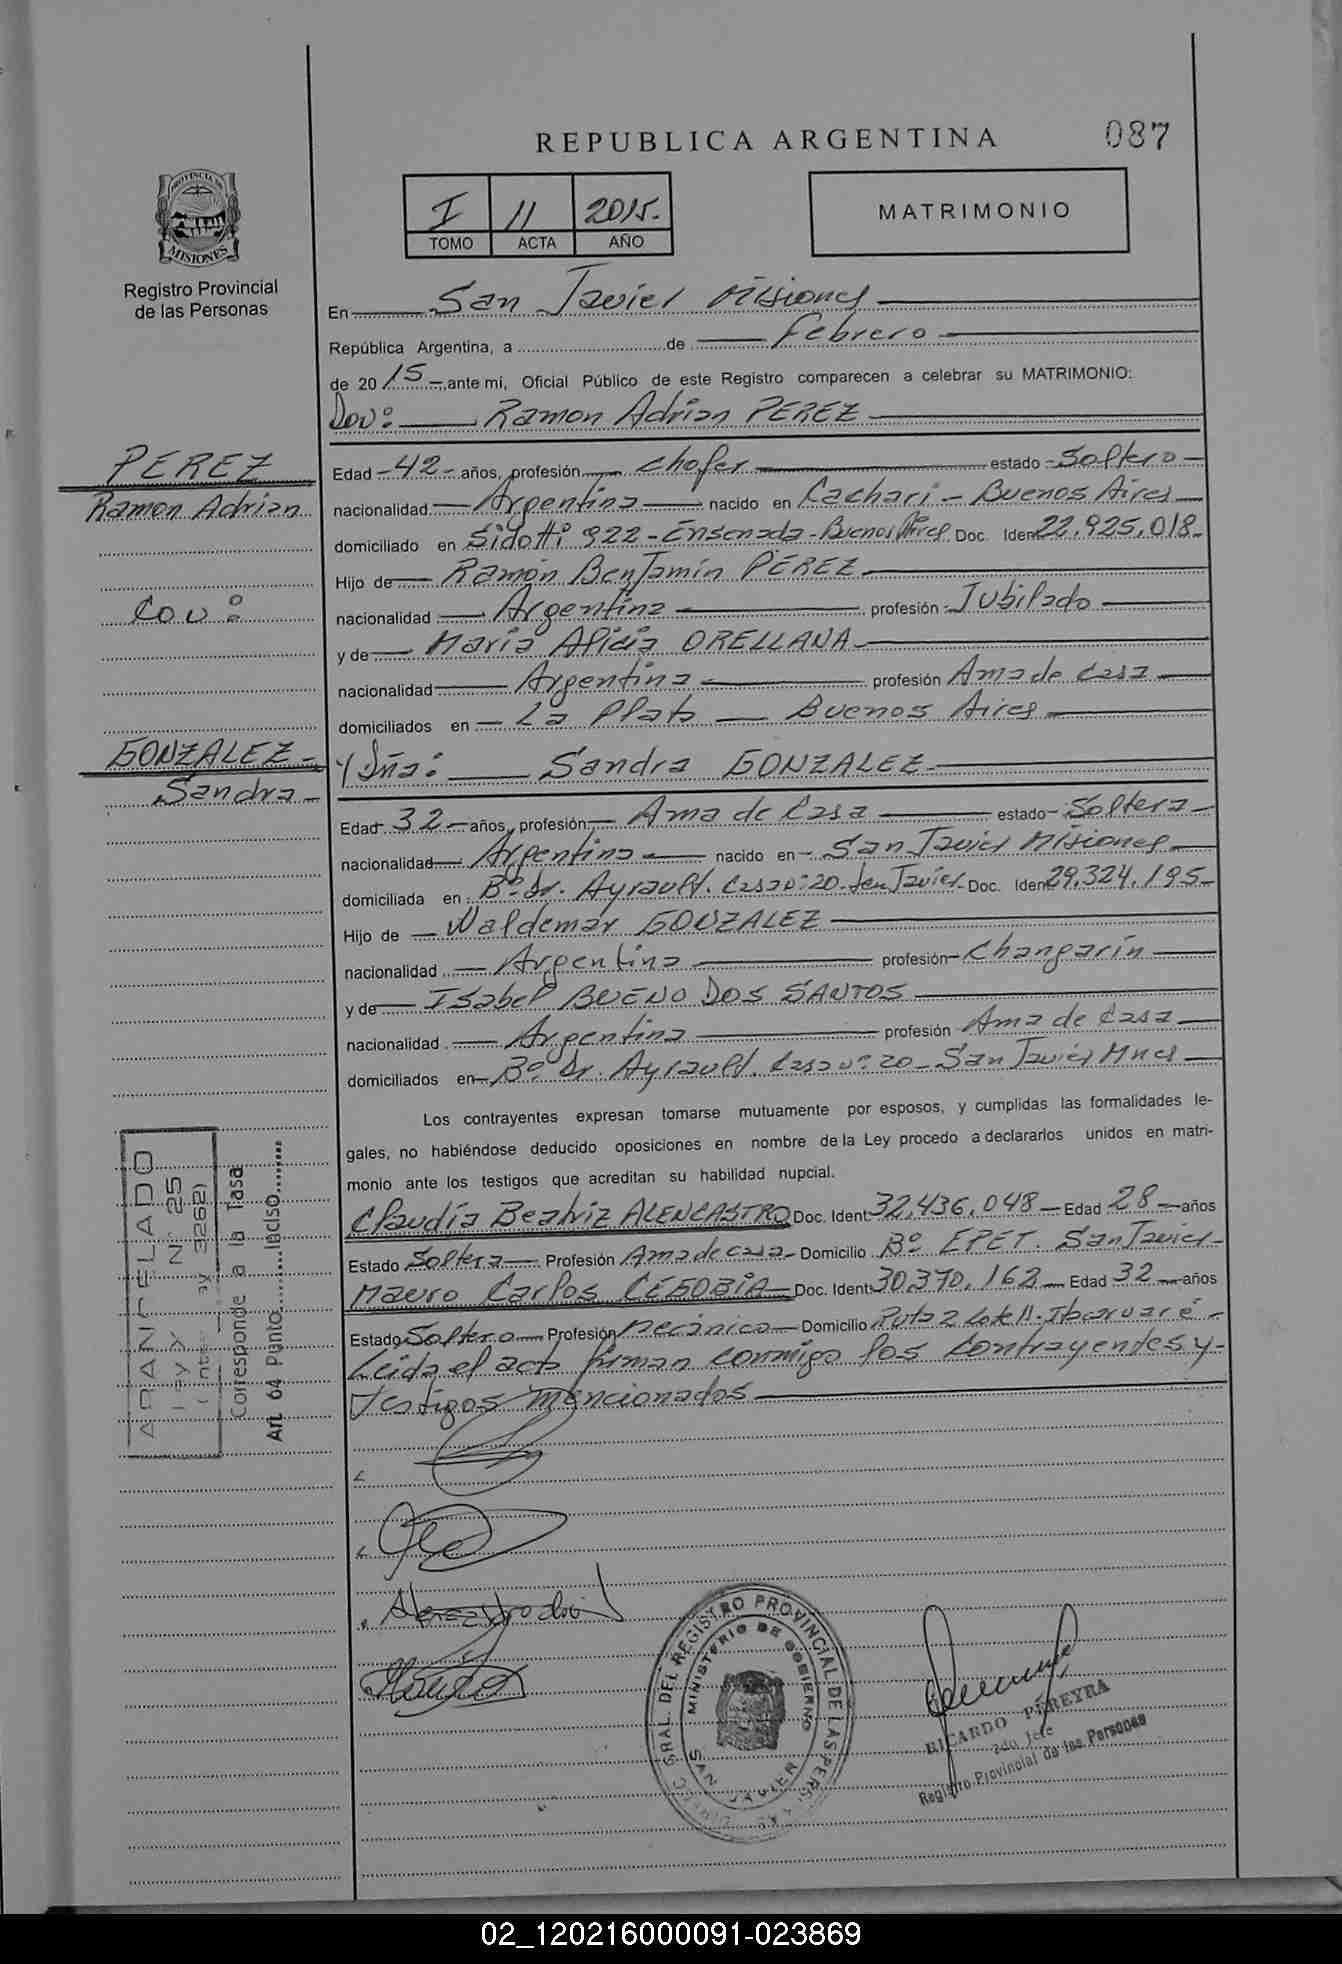 REPUBLICA ARGENTINA 087
I 11 2015.
TOMO ACTA AÑO
MATRIMONIO
PROVINCIA DE
MISIONES
Registro Provincial
de las Personas
En San Javier Misiones
República Argentina, a de Febrero
de 20 15 ante mí, Oficial Público de este Registro comparecen a celebrar su MATRIMONIO:
Don: Ramon Adrian PEREZ
PEREZ
Ramon Adrian
Con:
GONZALEZ
Sandra
Edad 42 años, profesión Chofer estado Soltero
nacionalidad Argentina nacido en Cachari - Buenos Aires
domiciliado en Sidotti 922 - Ensenada - Buenos Aires Doc. Iden 22.925.018
Hijo de Ramón Benjamin PEREZ
nacionalidad Argentina profesión Jubilado
y de Maria Alicia ORELLANA
nacionalidad Argentina profesión Ama de Casa
domiciliados en La Plata Buenos Aires
Y Dña: Sandra GONZALEZ
Edad 32 años, profesión Ama de Casa estado Soltera
nacionalidad Argentina nacido en San Javier Misiones
domiciliada en Bº Dr. Ayrault. Casa nº 20. San Javier Doc. Iden 29.324.195
Hijo de Waldemar GONZALEZ
nacionalidad Argentina profesión Changarín
y de Isabel BUENO DOS SANTOS
nacionalidad Argentina profesión Ama de Casa
domiciliados en Bº Dr. Ayrault. Casa nº 20 - San Javier Mnes
Los contrayentes expresan tomarse mutuamente por esposos, y cumplidas las formalidades le-
gales, no habiéndose deducido oposiciones en nombre de la Ley procedo a declararlos unidos en matri-
monio ante los testigos que acreditan su habilidad nupcial.
Claudia Beatriz ALENCASTRO Doc. Ident 32.436.048 Edad 28 años
Estado Soltera Profesión Ama de casa Domicilio Bº EPET. San Javier
Mauro Carlos Doc. Ident 30.370.162 Edad 32 años
Estado Soltero Profesión Mecánico Domicilio Ruta 2 Lote 11.
Leida el acta firman conmigo los Contrayentes y
Testigos mencionados
ARANCELADO
LEY Nº 25
3262)
Corresponde a la Tasa
Art. 64 Punto Inciso
GRAL. DEL REGISTRO PROVINCIAL DE LAS PERS.
MINISTERIO DE GOBIERNO
SAN JAVIER
RICARDO PEREYRA
2do Jefe
Registro Provincial de las Personas
02_120216000091-023869